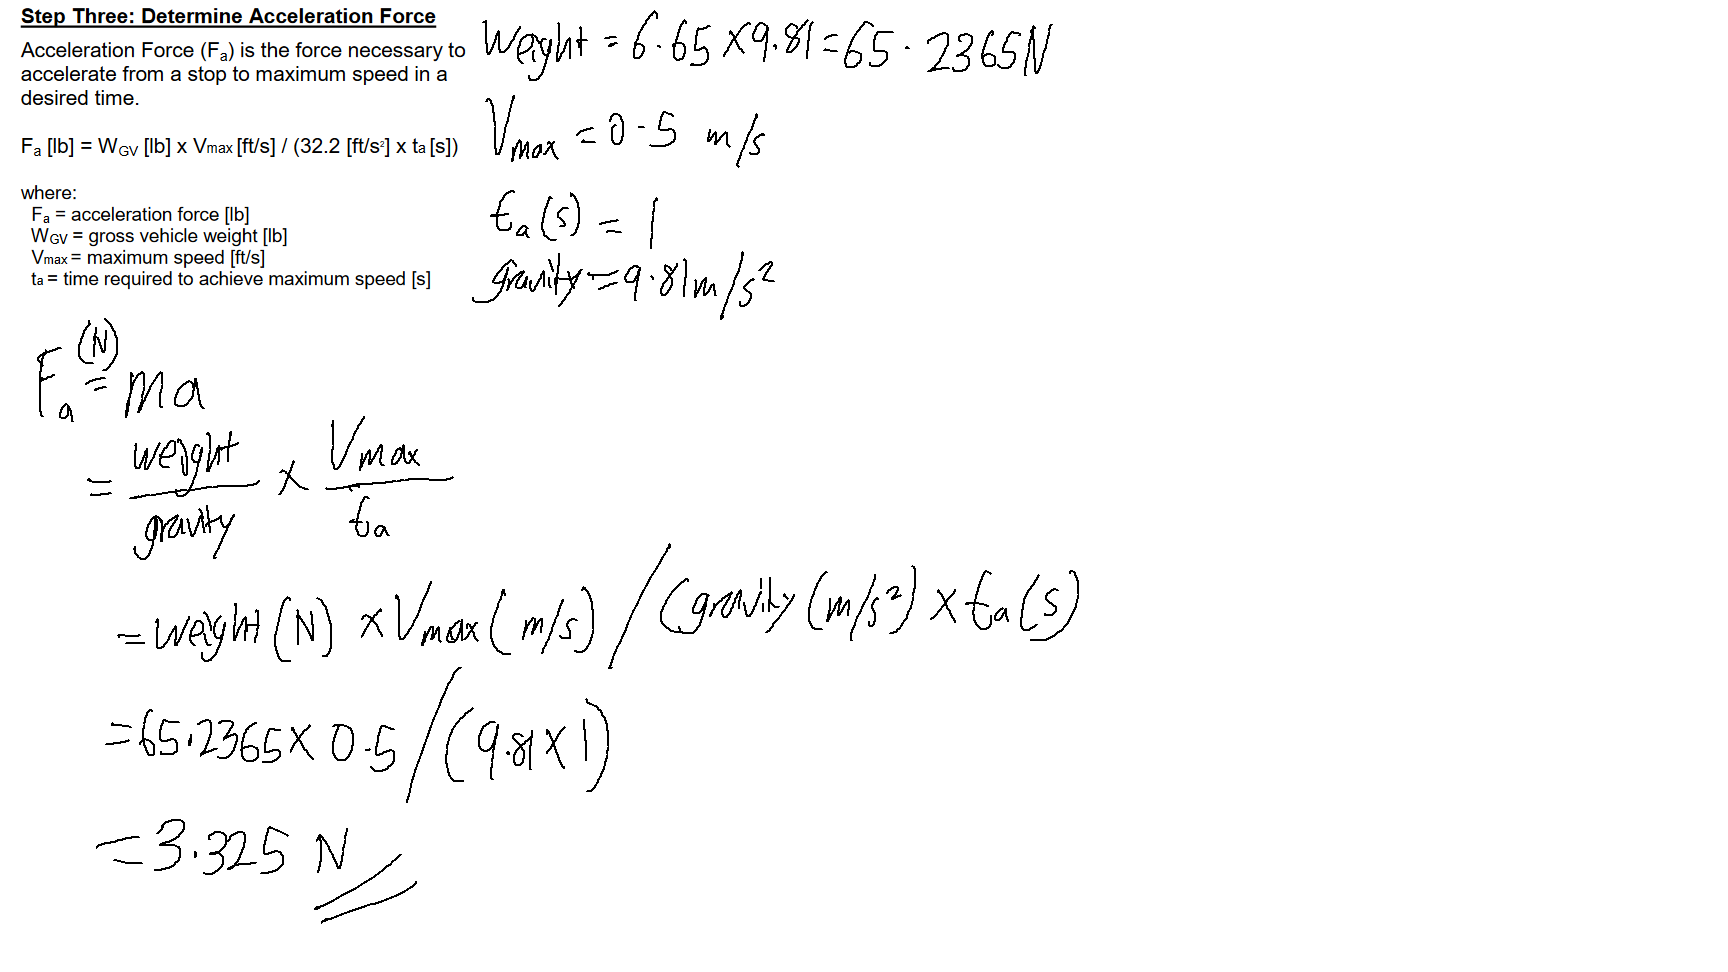 Step Three: Determine Acceleration Force
Acceleration Force (Fa) is the force necessary to
accelerate from a stop to maximum speed in a
desired time.
Fa [lb] = WGV [lb] x Vmax [ft/s] / (32.2 [ft/s²] x ta [s])
where:
Fa = acceleration force [lb]
WGV = gross vehicle weight [lb]
Vmax = maximum speed [ft/s]
ta = time required to achieve maximum speed [s]
Weight = 6.65 x 9.81 = 65.2365N
Vmax = 0.5 m/s
ta (s) = 1
gravity = 9.81m/s²
Fa (N) = ma
= weight / gravity x Vmax / ta
= weight (N) x Vmax (m/s) / (gravity (m/s²) x ta (s)
= 65.2365 x 0.5 / (9.81 x 1)
= 3.325 N